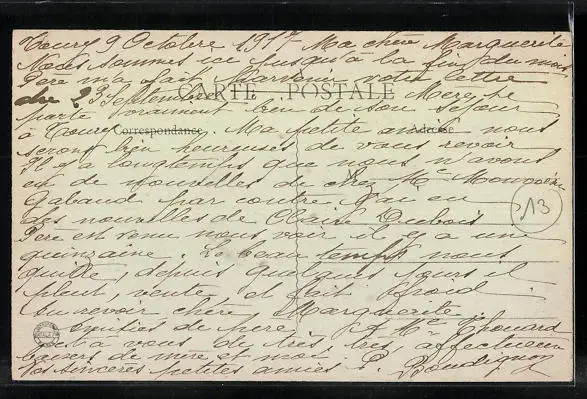 Tours 9 Octobre 1917 Ma chère Marguerite
Nous sommes ici jusqu'à la fin du mois
Père m'a fait parvenir votre lettre
du 23 Septembre Mère se
CARTE POSTALE
porte vraiment bien de son séjour
à Tours. Ma petite amie nous
Correspondance Adresse
serons bien heureuses de vous revoir
Il y a longtemps que nous n'avons
eu de nouvelles de chez Me
Gabaud par contre j'ai eu
213
des nouvelles de Claire Dubois
Père est venu nous voir il y a une
quinzaine. Le beau temps nous
quitte, depuis quelques jours il
pleut, vente et fait froid.
Au revoir chère Marguerite
Amitiés de père à Me Chouard
et à vous de très, très, affectueux
baisers de mère et moi
vos sincères petites amies P.